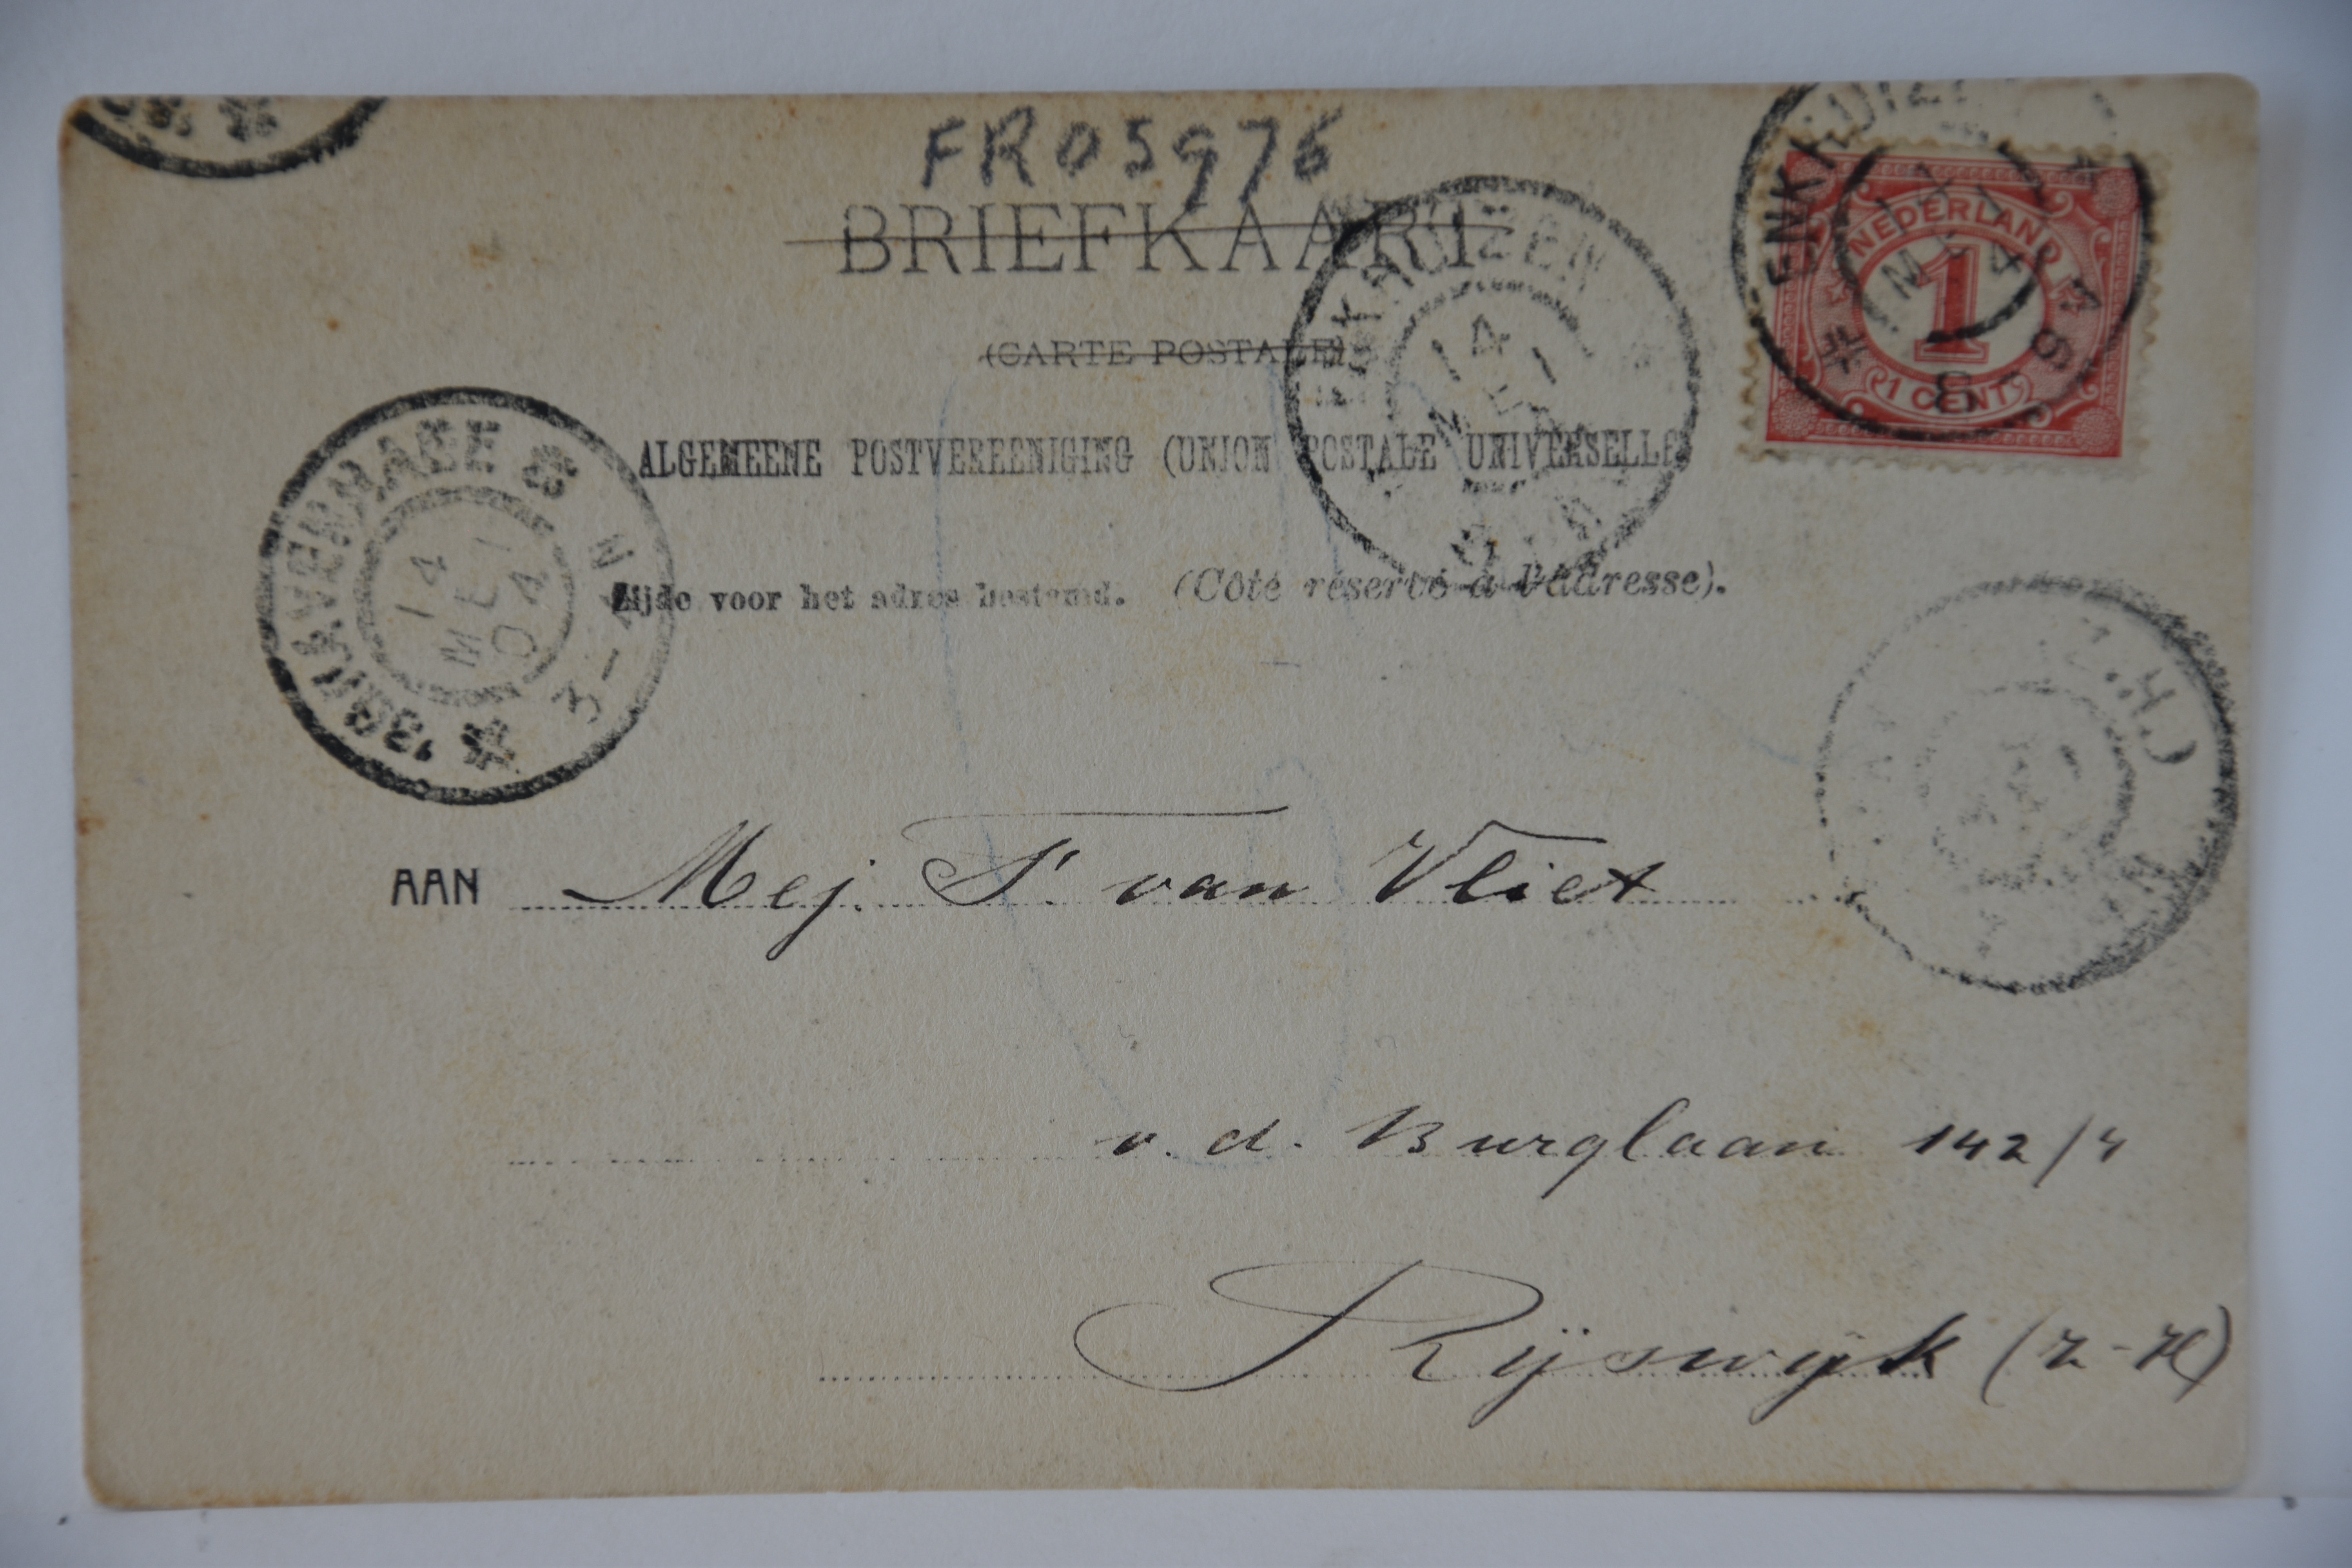 FR05976
BRIEFKAART
(CARTE POSTALE)
ALGEMEENE POSTVEREENIGING (UNION POSTALE UNIVERSELLE
Zijde voor het adres bestemd. (Côté réservé à l'adresse).
ENKHUIZEN
14
MEI
ENKHUIZEN
NEDERLAND
1
1 CENT
'SGRAVENHAGE
14
MEI
04
3-4N
AAN Mej. S. van Vliet
v. d. Burglaan 142/4
Rijswijk (Z-H)